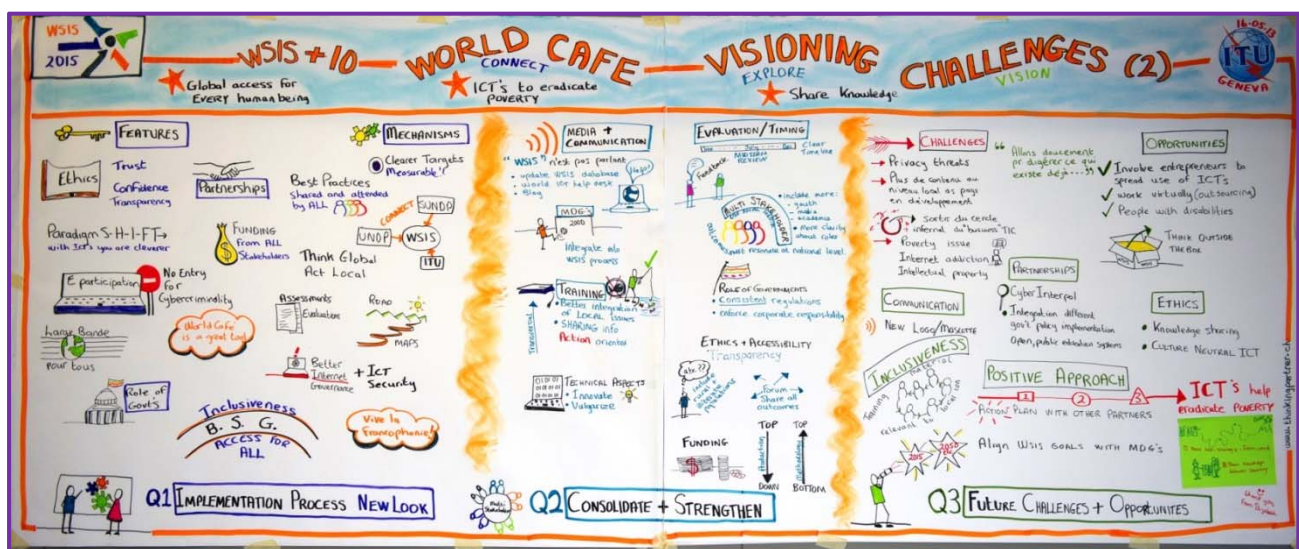 WSIS
2015
WSIS +10 WORLD CAFE VISIONING CHALLENGES (2)
CONNECT
EXPLORE
VISION
16-05-13
ITU
GENEVA
Global access for
EVERY human being
ICT's to eradicate
POVERTY
Share Knowledge
FEATURES
Ethics
Trust
Confidence
Transparency
Partnerships
Paradigm S-H-I-F-T→
with ICT's you are cleverer
FUNDING
from ALL
Stakeholders
E participation
No Entry
for
Cybercriminality
Large Bande
pour tous
"World Café"
is a great tool
Role of
Gov'ts
Inclusiveness
B. S. G.
ACCESS FOR
ALL
MECHANISMS
Clearer Targets
Measurable!
Best Practices
Shared and attended
by ALL
CONNECT
UNDP
WSIS
ITU
Think Global
Act Local
Assessments
Evaluation
ROAD
MAPS
Better
Internet
Governance
+ ICT
Security
Vive la
Francophonie!
Q1 IMPLEMENTATION PROCESS NEW LOOK
MEDIA +
COMMUNICATION
"WSIS" n'est pas parlant
update WSIS database
help desk
Blog
Help!
MDG's
Integrate into
WSIS process
TRAINING
Transversal
• Better integration
of LOCAL issues
• SHARING info
Action oriented
TECHNICAL ASPECTS
• Innovate
• Vulgarize
Multi
Stakeholder
Q2 CONSOLIDATE + STRENGTHEN
EVALUATION/TIMING
Clear
Timeline
REVIEW
Feedback
MULTI STAKEHOLDER
include more:
- youth
- media
- academia
• more clarity
about roles
at national level.
ROLE OF GOVERNMENTS
• Consistent regulations
• enforce corporate responsibility
ETHICS + ACCESSIBILITY
Transparency
include
rural
Forum
Share all
outcomes
FUNDING
TOP
DOWN
TOP
Methodology
BOTTOM
CHALLENGES
→ Privacy threats
→ Plus de contenu au
niveau local ds pays
en développement
Sortir du cercle
infernal du "business" TIC
→ Poverty issue
Internet addiction
Intellectual property
"Allons doucement
pr digérer ce qui
existe déjà..."
OPPORTUNITIES
✓ Involve entrepreneurs to
spread use of ICTs
✓ work virtually (outsourcing)
✓ People with disabilities
THINK OUTSIDE
THE BOX
PARTNERSHIPS
• CyberInterpol
• Integration different
gov't policy implementation
Open, public education systems
COMMUNICATION
New Logo/Mascotte
ETHICS
• Knowledge sharing
• CULTURE NEUTRAL ICT
INCLUSIVENESS
Training
material
relevant to
local
POSITIVE APPROACH
1 2 3
ACTION PLAN WITH OTHER PARTNERS
ICT's help
eradicate POVERTY
2015
Align WSIS GOALS WITH MDG's
www.thinkingpartner.ch
Q3 FUTURE CHALLENGES + OPPORTUNITES